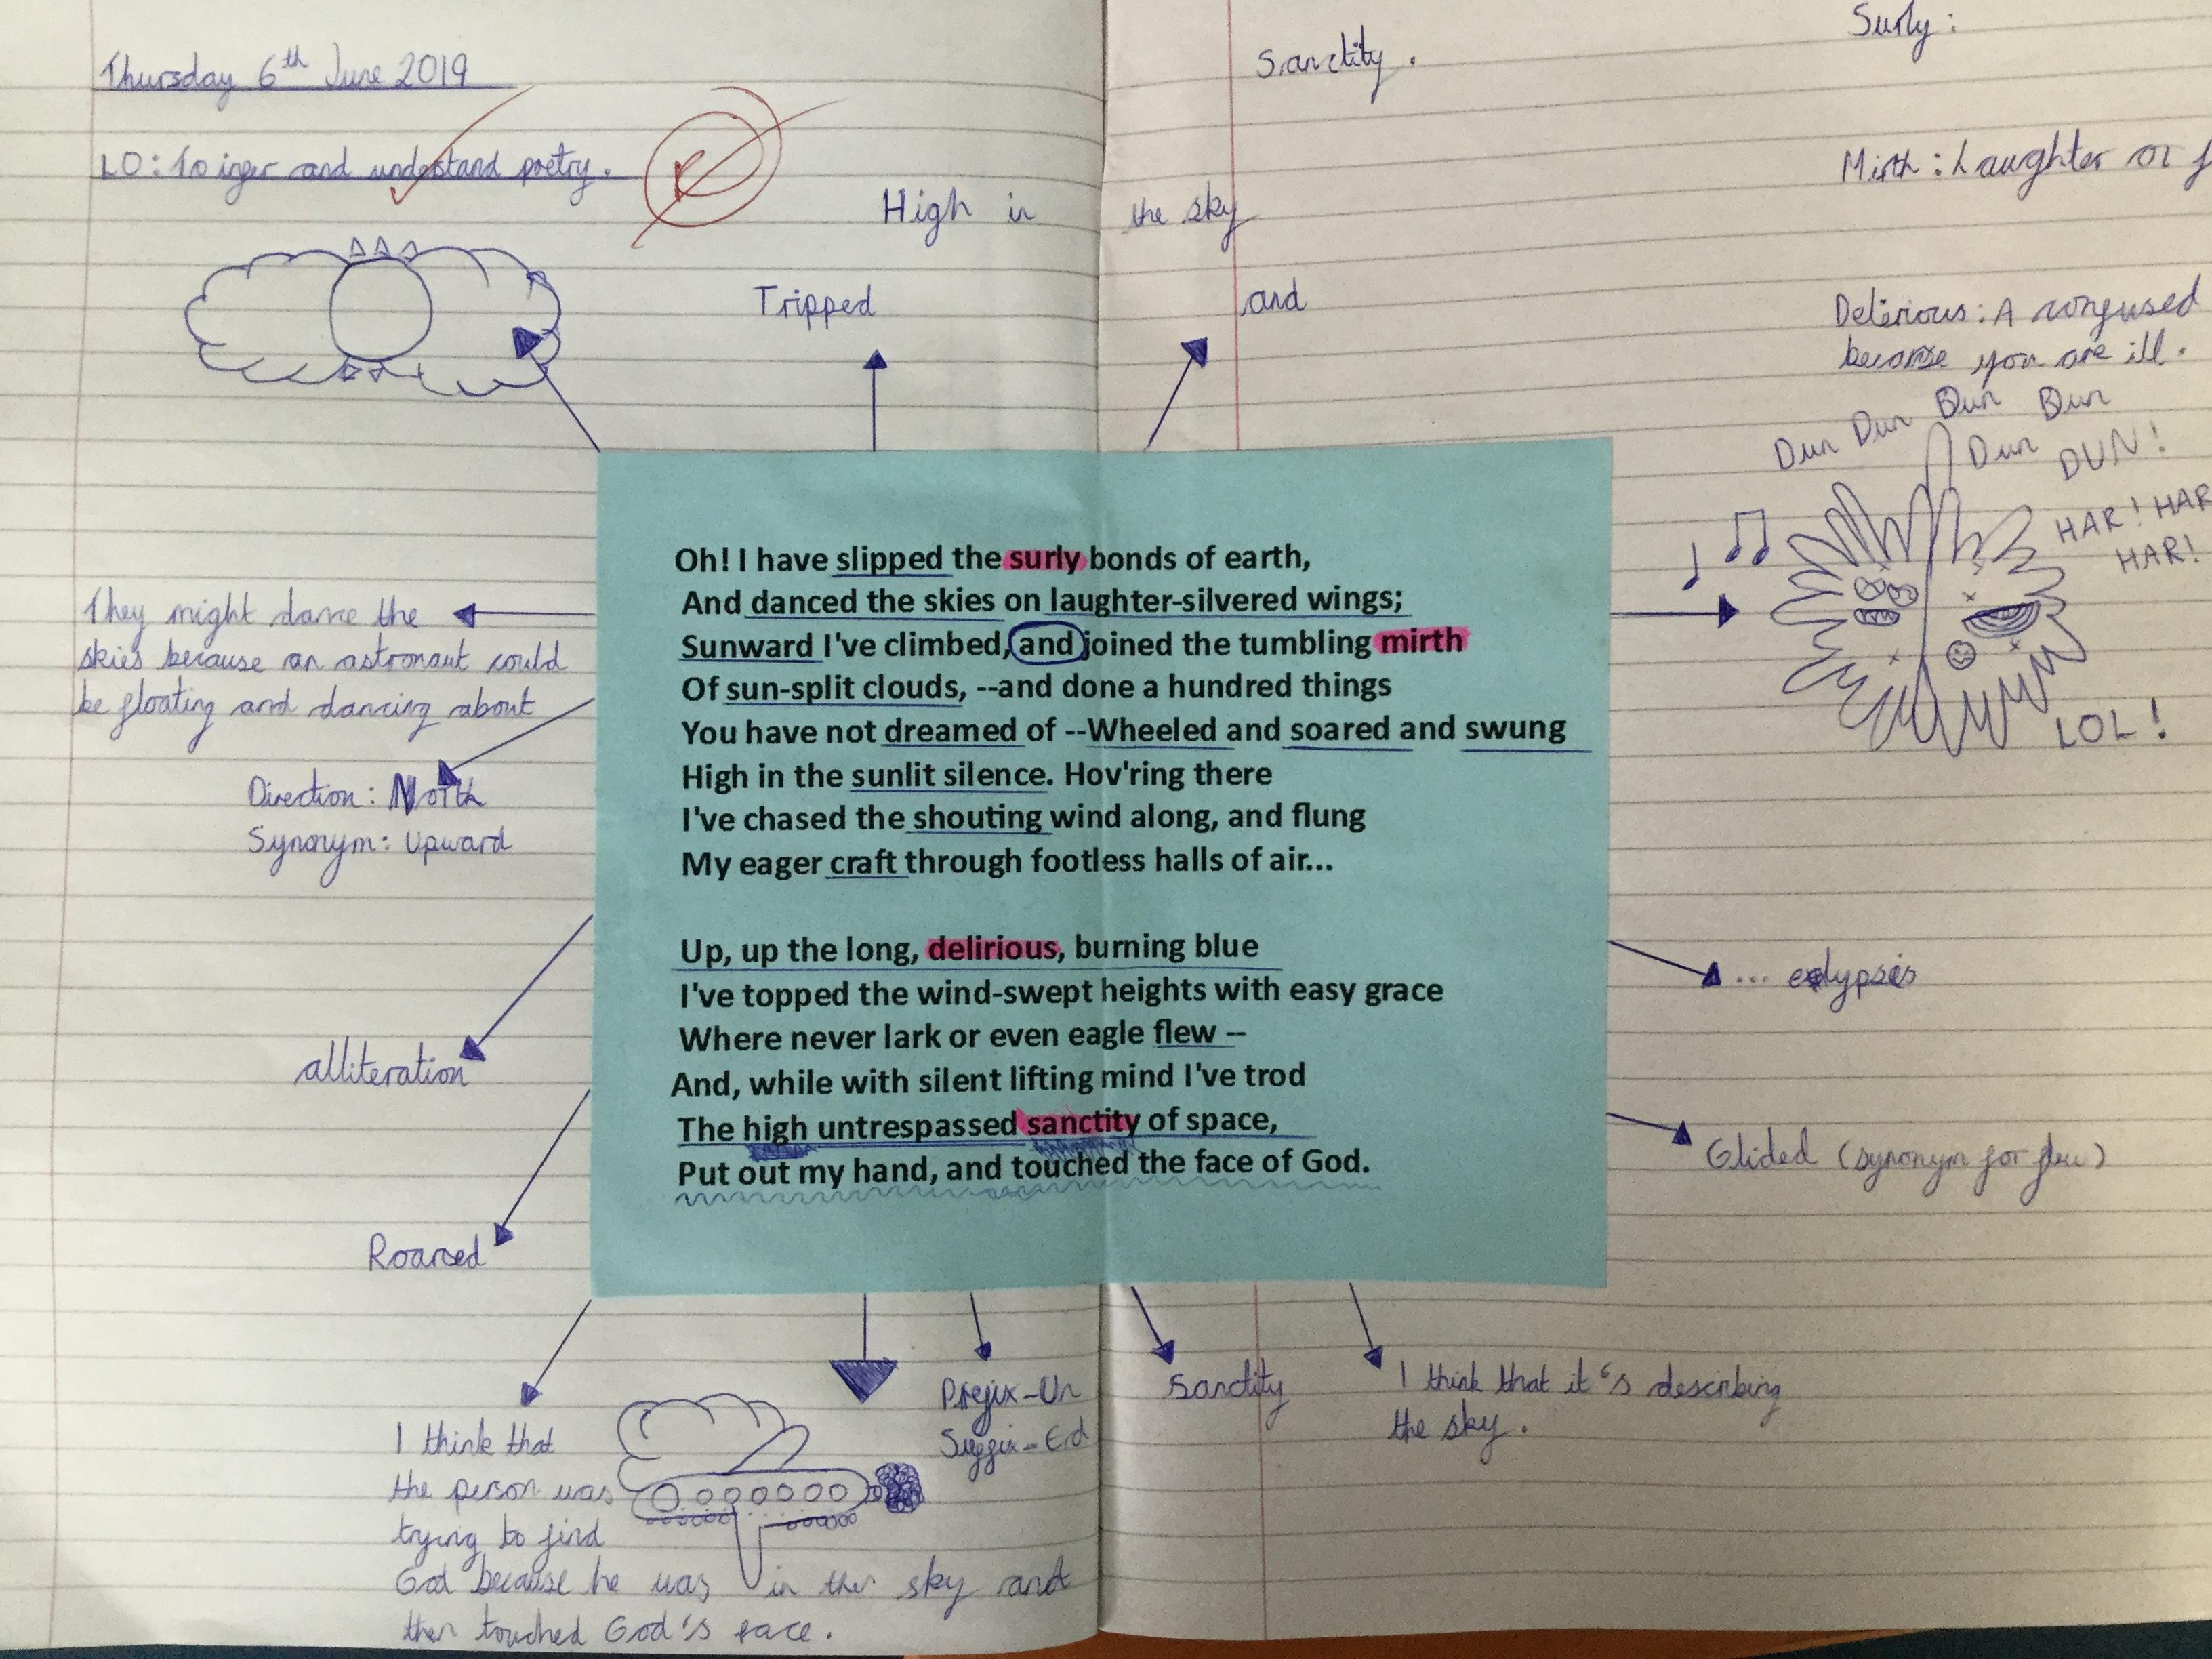 Thursday 6th June 2019
LO: To infer and understand poetry.
High in the sky
Tripped
and
Sanctity.
Surly:
Mirth: Laughter or
Delirious: A confused
because you are ill.
Dun Dun Dun Dun
Dun DUN!
HAR! HAR
HAR!
LOL!
They might dance the
skies because an astronaut could
be floating and dancing about
Direction: North
Synonym: Upward
alliteration
Roared
Oh! I have slipped the surly bonds of earth,
And danced the skies on laughter-silvered wings;
Sunward I've climbed, and joined the tumbling mirth
Of sun-split clouds, --and done a hundred things
You have not dreamed of --Wheeled and soared and swung
High in the sunlit silence. Hov'ring there
I've chased the shouting wind along, and flung
My eager craft through footless halls of air...
Up, up the long, delirious, burning blue
I've topped the wind-swept heights with easy grace
Where never lark or even eagle flew --
And, while with silent lifting mind I've trod
The high untrespassed sanctity of space,
Put out my hand, and touched the face of God.
...
Glided (synonym for flew)
I think that
the person was
trying to find
God because he was in the sky and
then touched God's face.
Prefix-Un
Suffix-Ed
Sanctity
I think that it's describing
the sky.